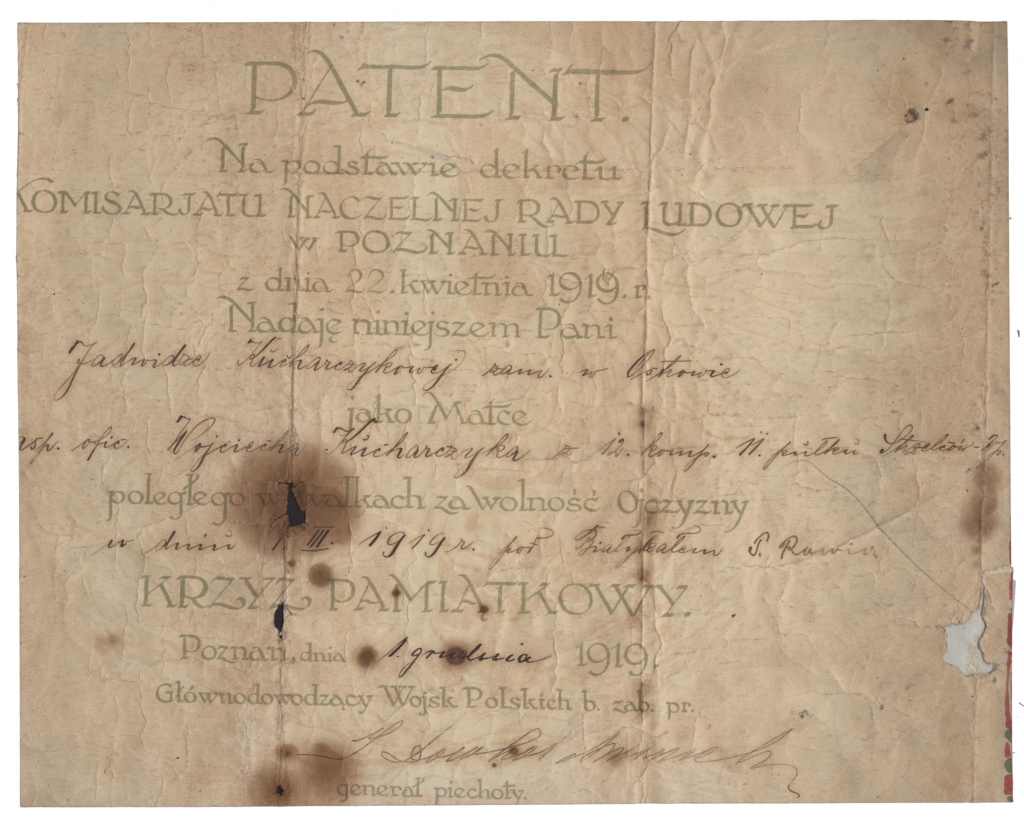 PATENT.
Na podstawie dekretu
KOMISARJATU NACZELNEJ RADY LUDOWEJ
w POZNANIU
z dnia 22. kwietnia 1919. r.
Nadaję niniejszem Pani
Jadwidze Kucharczykowej zam. w Ostrowie
jako Matce
asp. ofic. Wojciecha Kucharczyka z 12. komp. 11. pułku Strzelców
poległego w walkach za Wolność Ojczyzny
w dniu III. 1919 r. pod Białykałem p. Rawicz
KRZYŻ PAMIĄTKOWY.
Poznań, dnia 1. grudnia 1919.
Głównodowodzący Wojsk Polskich b. zab. pr.
generał piechoty.